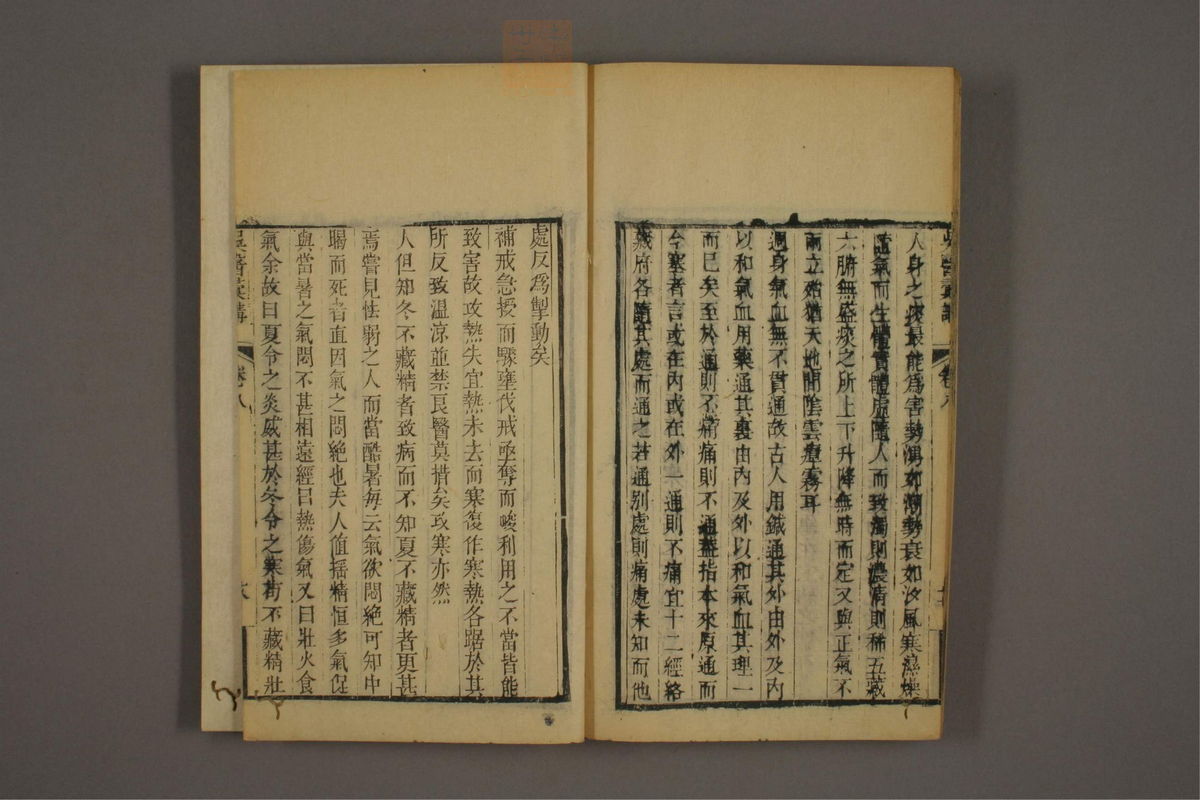 吳醫彙講 卷八
人身之痰最能爲害勢湧如潮勢衰如汐風寒濕燥
隨氣而生體實體虛隨人而致濁則濃清則稀五藏
六腑無盛痰之所上下升降無時而定又與正氣不
兩立殆猶天地間陰雲瘴霧耳
通身氣血無不貫通故古人用鍼通其外由外及內
以和氣血用藥通其裏由內及外以和氣血其理一
而已矣至於通則不痛痛則不通蓋指本來原通而
今塞者言或在內或在外一通則不痛宜十二經絡
藏府各隨其處而通之若通别處則痛處未知而他
處反爲掣動矣
補戒急授而驟壅伐戒亟奪而峻利用之不當皆能
致害故攻熱失宜熱未去而寒復作寒熱各踞於其
所反致温涼並禁良醫莫措矣攻寒亦然
人但知冬不藏精者致病而不知夏不藏精者更甚
焉嘗見怯弱之人而當酷暑每云氣欲悶絕可知中
暍而死者直因氣之悶絕也夫人值揺精恒多氣促
與當暑之氣悶不甚相遠經曰熱傷氣又曰壯火食
氣余故曰夏令之炎威甚於冬令之寒苟不藏精壯
吳醫彙講 卷八